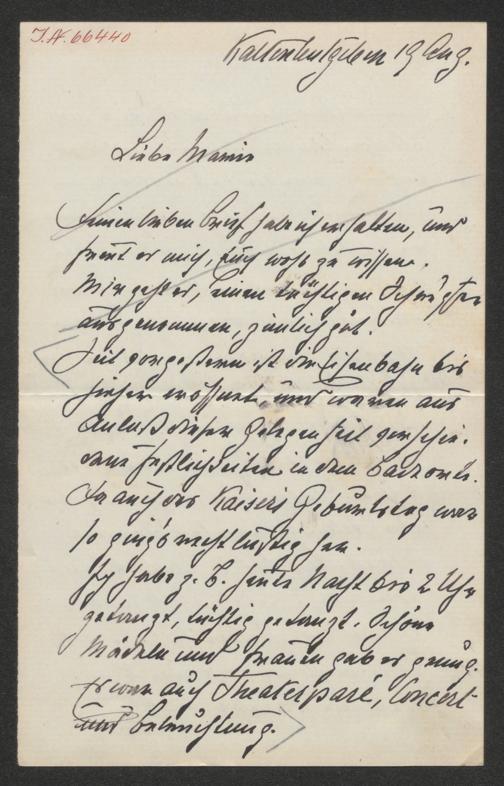 J.N. 66440
Kaltenleutgeben 19 Aug.
Liebe Mamie
Deinen lieben Brief habe ich erhalten, und
freut es mich, Euch wohl zu wissen.
Mir geht es, einen tüchtigen Schnupfen
ausgenommen, ziemlich gut.
Seit vorgestern ist die Eisenbahn bis
hieher eröffnet und waren aus
Anlaß dieser Gelegenheit verschie-
dene Festlichkeiten in dem Badeorte.
Da auch des Kaisers Geburtstag war
so ging's recht lustig her.
Ich habe z. B. heute Nacht bis 2 Uhr
getanzt, tüchtig getanzt. Schöne
Mädeln und Frauen gab es genug.
Es war auch Theaterparé, Concert
und Beleuchtung.